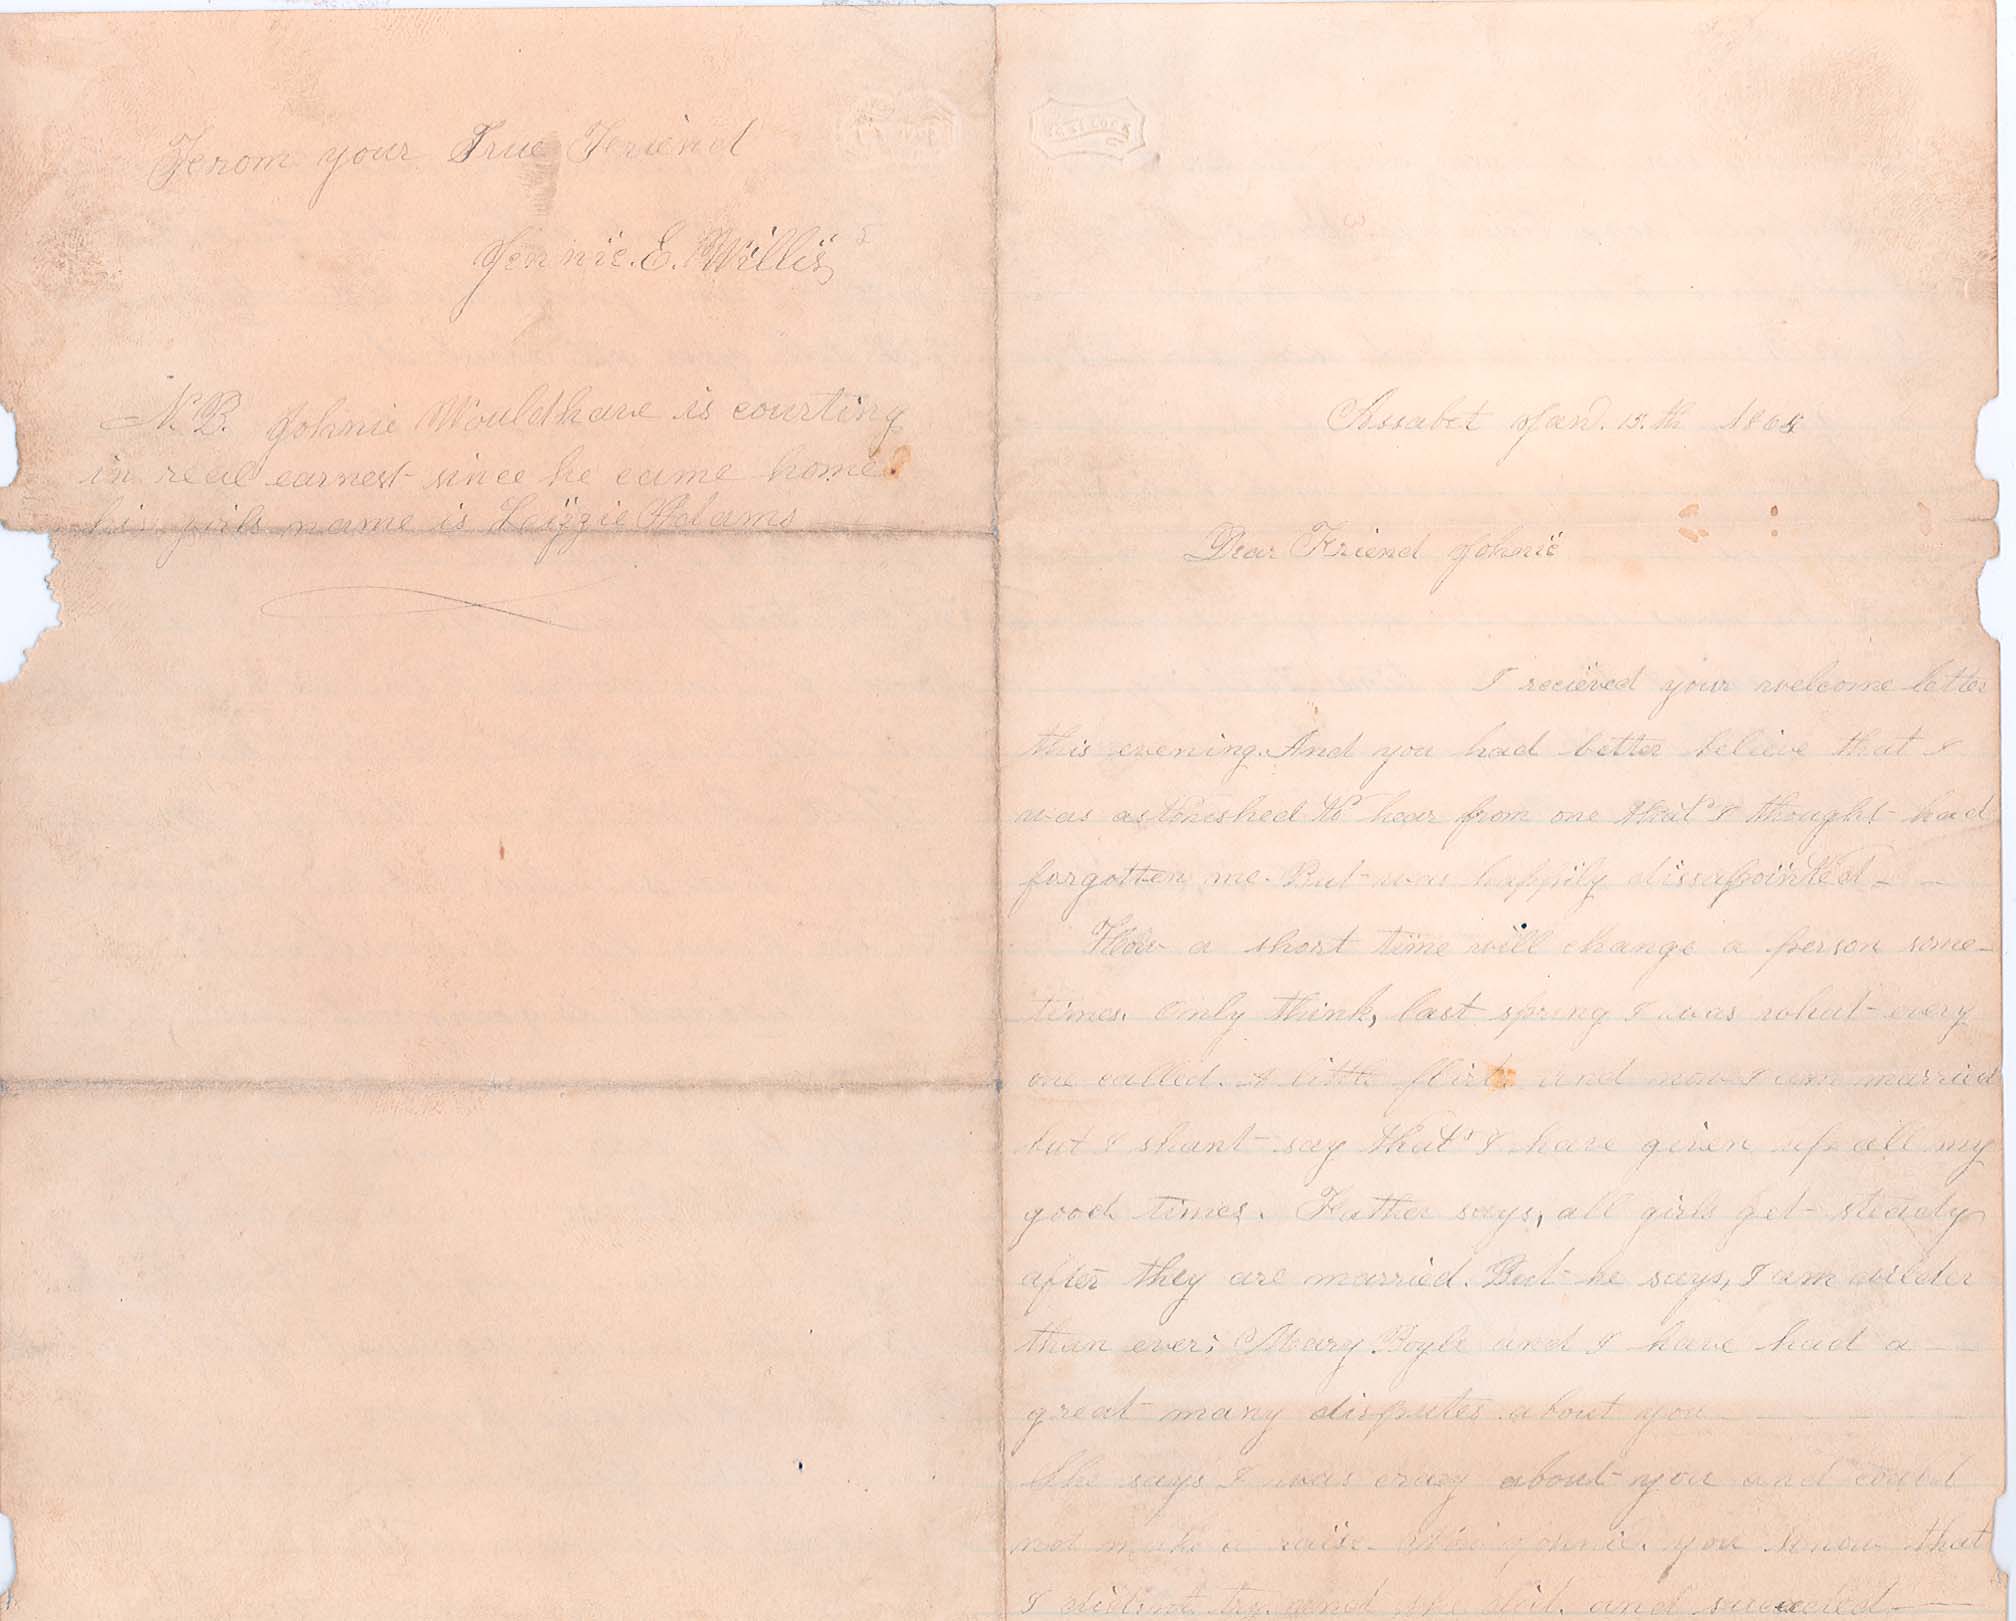 From your True Friend
Jennie. E. Willis
N. B. Johnie Wouldhave is courting
in real earnest since he came home.
his girls name is Lizzie Adams
Assabet Jan. 15.th 1865
Dear Friend Johnie
I recieved your welcome letter
this evening. And you had better believe that I
was astonished to hear from one that I thought had
forgotten me. But was happily dissapointed
How a short time will change a person some-
times. Only think, last spring I was what every
one called. A little flirt. and now I am married
but I shant say that I have given up all my
good times. Father says, all girls get steady
after they are married. But he says, I am wilder
than ever; Mary Boyle and I have had a
great many disputes about you
She says I was crazy about you and could
not make a raise. Johnie. you know that
I did,nt try. and she did. and succeeded